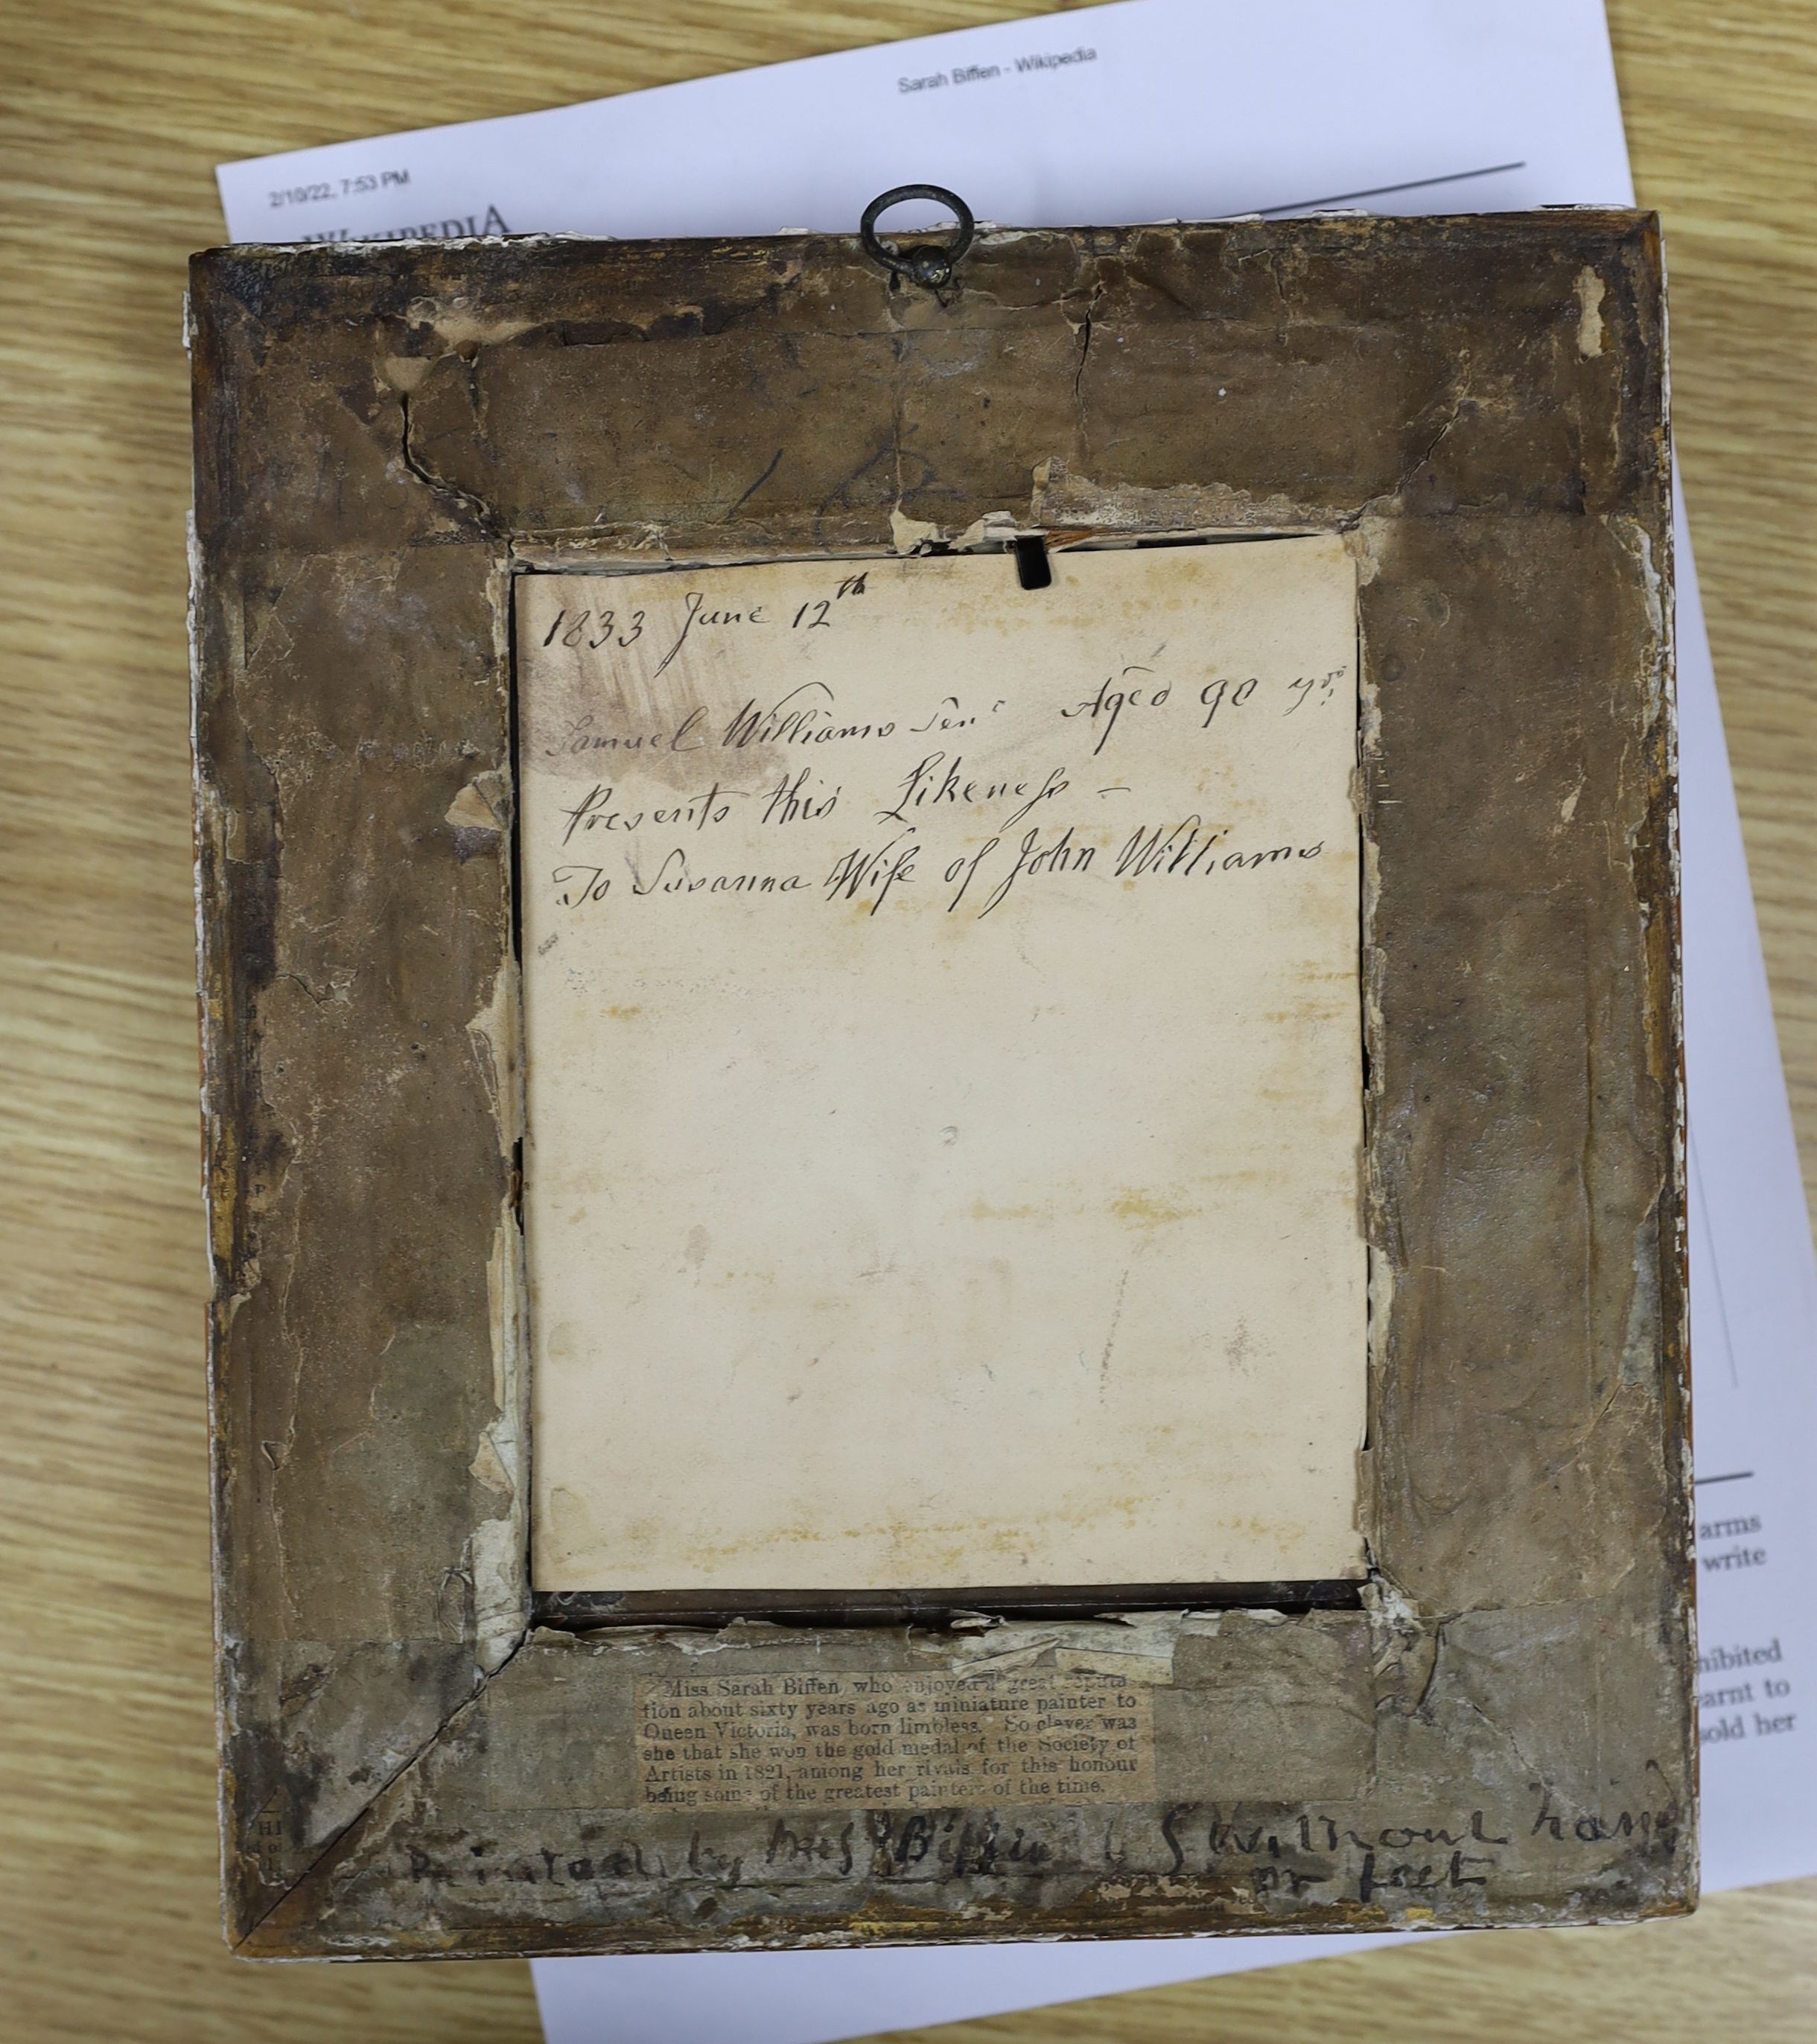 Sarah Biffen - Wikipedia
2/10/22, 7:53 PM
WIKIPEDIA
1833 June 12th
Samuel Williams Senr Aged 90 yrs.
Presents this Likeness –
To Susanna Wife of John Williams
arms
write
hibited
earnt to
sold her
Miss Sarah Biffen, who enjoyed a great reputa-
tion about sixty years ago as miniature painter to
Queen Victoria, was born limbless. So clever was
she that she won the gold medal of the Society of
Artists in 1821, among her rivals for this honour
being some of the greatest painters of the time.
Painted by Miss Biffin without hands
or feet